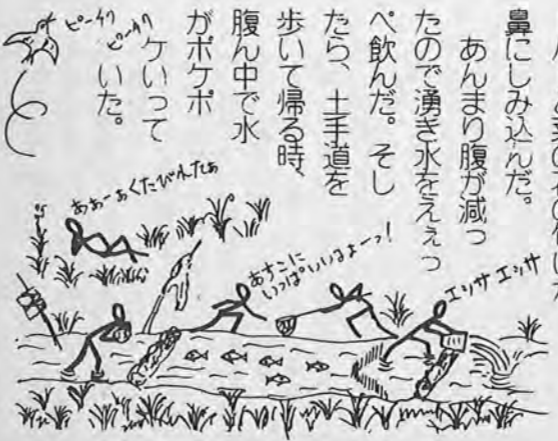 鼻にしみ込んだ。
あんまり腹が減っ
たので湧き水をええっ
ぺ飲んだ。そし
たら、土手道を
歩いて帰る時、
腹ん中で水
がポケポ
ケいって
いた。
ピーチク
ピーチク
あぁーあくたびれたぁ
あすこに
いっぱいいるよーっ!
エッサ エッサ